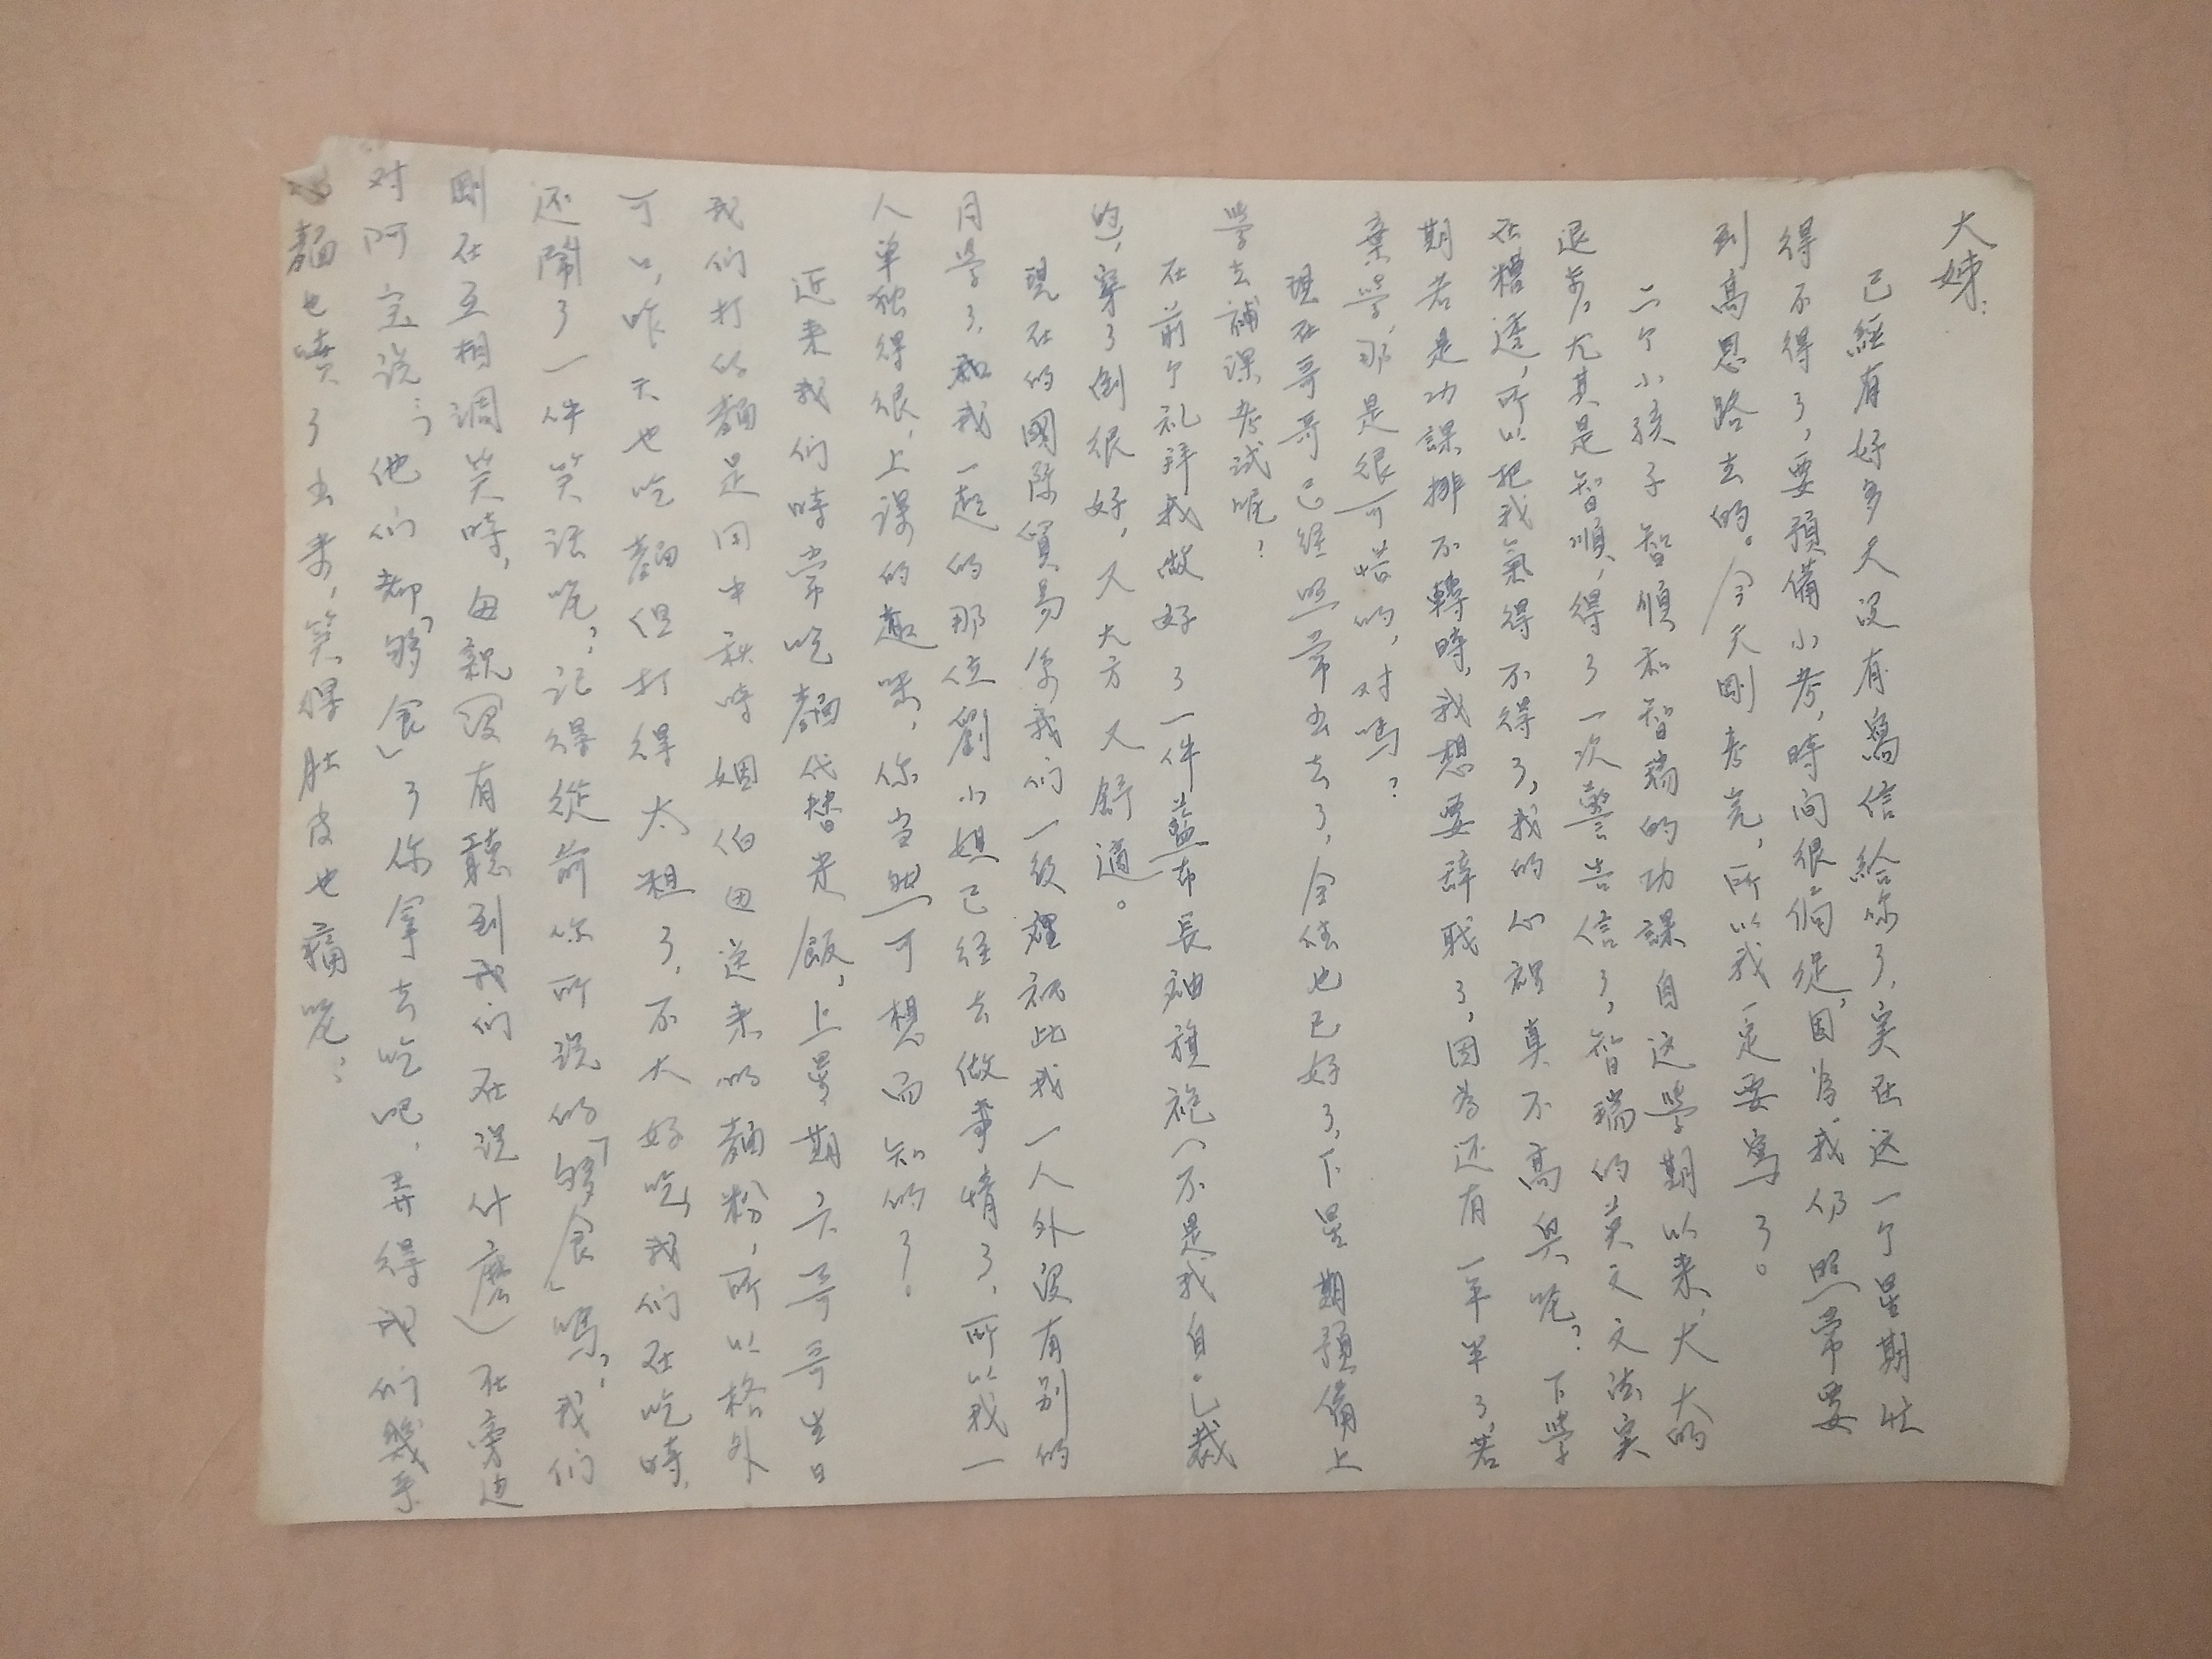 大姊：
已經有好多天沒有寫信給你了，实在这一个星期忙
得不得了，要預備小考，時间很侷促，因為我仍照常要
到高恩路去的。今天剛考完，所以我一定要寫了。
二个小孩子智順和智瑞的功課自这學期以来，大大的
退步，尤其是智順，得了一次警告信了，智瑞的英文文法实
在糟透，所以把我氣得不得了，我的心裡真不高興呢？下學
期若是功課排不轉時，我想要辞職了，因為还有一年半了，若
棄學，那是很可惜的，对嗎？
現在哥哥已经照常出去了，全佳也已好了，下星期預備上
學去補课考試呢？
在前个礼拜我做好了一件藍布長袖旗袍（不是我自己裁
的），穿了倒很好，又大方又舒適。
現在的國际貿易系我们一级裡祇此我一人外没有别的
同學了，和我一起的那位劉小姐已经去做事情了，所以我一
人单独得很，上课的趣味，你当然可想而知的了。
近来我们時常吃麵代替米飯，上星期六哥哥生日
我们打的麵是因中秋時姻伯母送来的麵粉，所以格外
可口，昨天也吃麵但打得太粗了，不大好吃，我们在吃時，
还鬧了一件笑话呢，记得從前你所说的「够食」嗎？我们
剛在互相调笑時，母親（没有聽到我们在说什麽）在旁边
对阿宝说；他们都「够食」了你拿去吃吧，弄得我们幾乎
麵也噴了出来，笑得肚皮也痛呢；